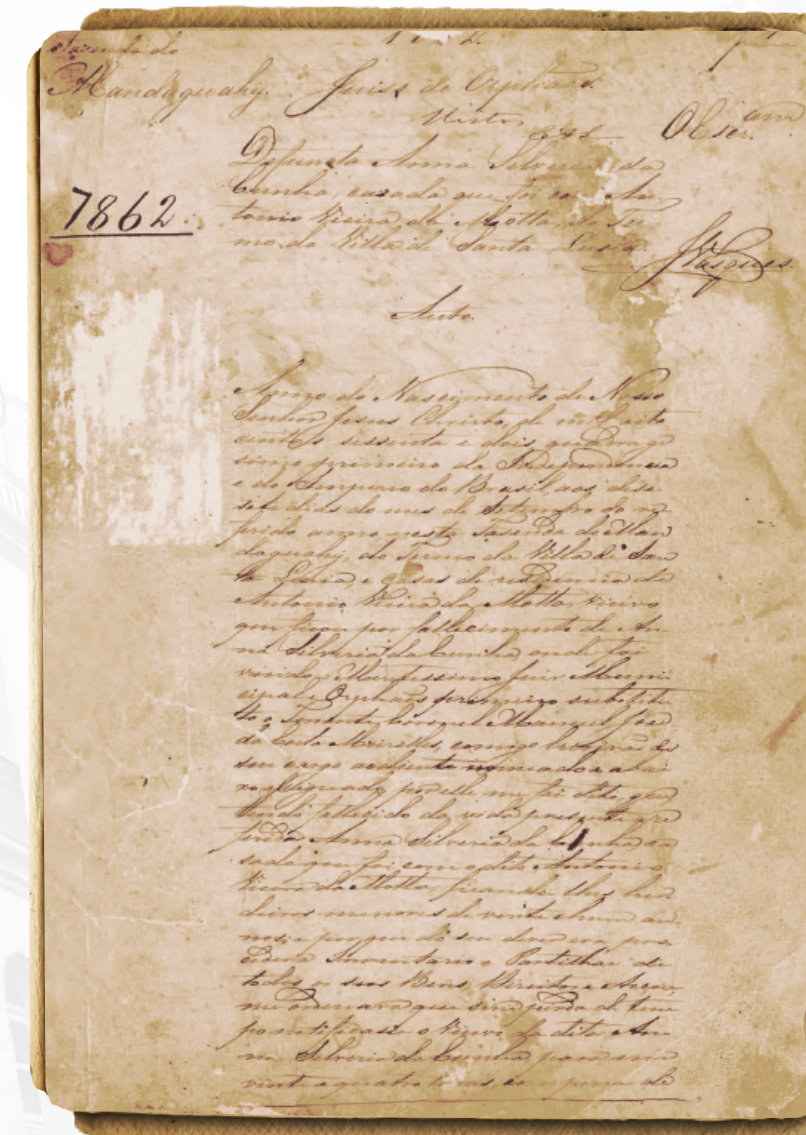 Fazenda do
Mandaguahy. Juiso de Orphãos
OEscr.am
Defuncta Anna Silveria da
Cunha, casada que foi com An
tonio Vieira da Motta, do Ter
mo da Villa de Santa Lusia
Vasques
7862
Auto
Anno do Nascimento de Nosso
Senhor Jesus Christo, de mil oito
centos sessenta e dois, quadrage
simo primeiro da Independencia
e do Imperio do Brasil, aos dese
sete dias do mes de Setembro do re
ferido anno nesta Fasenda do Man
daguahy, do Termo da Villa de San
ta Lusia, e casas de residencia de
Antonio Vieira da Motta, viuvo
que ficou por fallecimento de An
na Silveria da Cunha, onde foi
vindo o Meretissimo Juis Muni
cipal e Orphãos primeiro substitu
to o Tenente Coronel Manoel José
da Costa Meirelles, comigo Escrivão de
seu cargo adiante nomeado e abai
xo assignado, por elle me foi dito, que
tendo fallecido da vida presente a re
ferida Anna Silveria da Cunha ca
sada que foi com o dito Antonio
Vieira da Motta, ficando lhes her
deiros menores de vinte e hum an
nos, e porque de seu dever era pro
ceder a Inventario e Partilhas de
todos os seus Bens, Direitos e Acções,
me ordenara que sem perda de tem
po notificasse o viuvo da dita An
na Silveria da Cunha, para em
vinte e quatro horas, com pena de